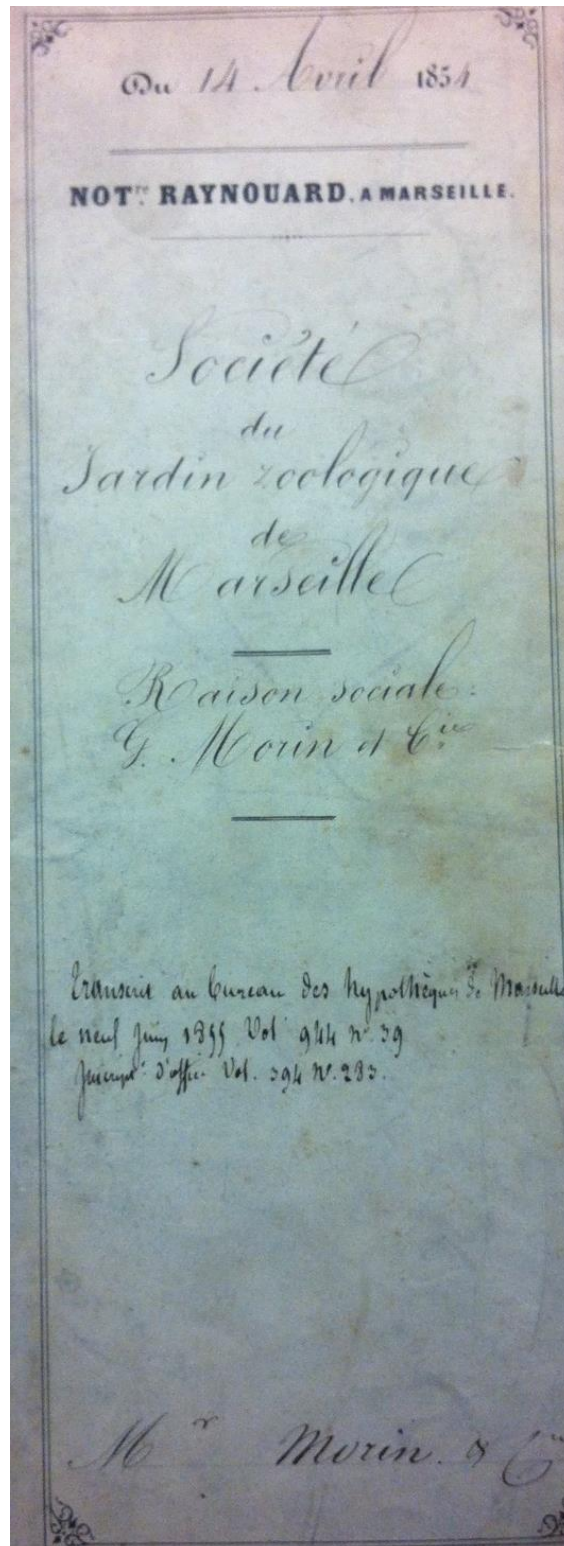 Du 14 Avril 1854
NOTre. RAYNOUARD, A MARSEILLE.
Société
du
Jardin zoologique
de
Marseille
Raison sociale:
G. Morin et Cie
Transcrit au bureau des hypothèques de Marseille
le neuf juin 1855 Vol 944 n°. 39
Inscript° d'office Vol. 394 N°. 283.
Mr Morin. & Cie